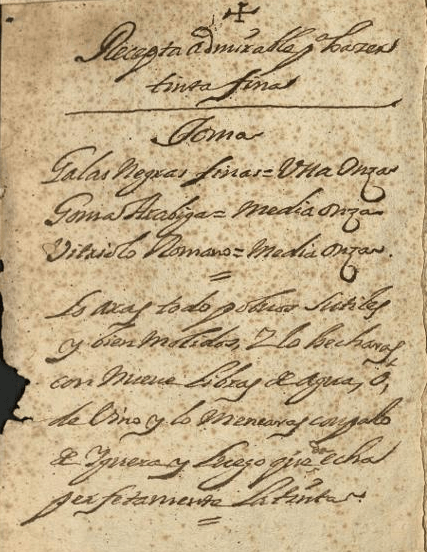 Recepta admirable p.ª hazer
tinta fina
Toma
Galas Negras finas = Vna Onza
Goma Arabiga = media onza
Vitriolo Romano = media onza.
Lo aras todo polvos sutiles
y bien Molidos, Y lo hecharas
con Nueve Libras de agua, ó,
de Vino y lo Menearas con palo
de Yguera y Luego que echa
perfetamente la tinta.